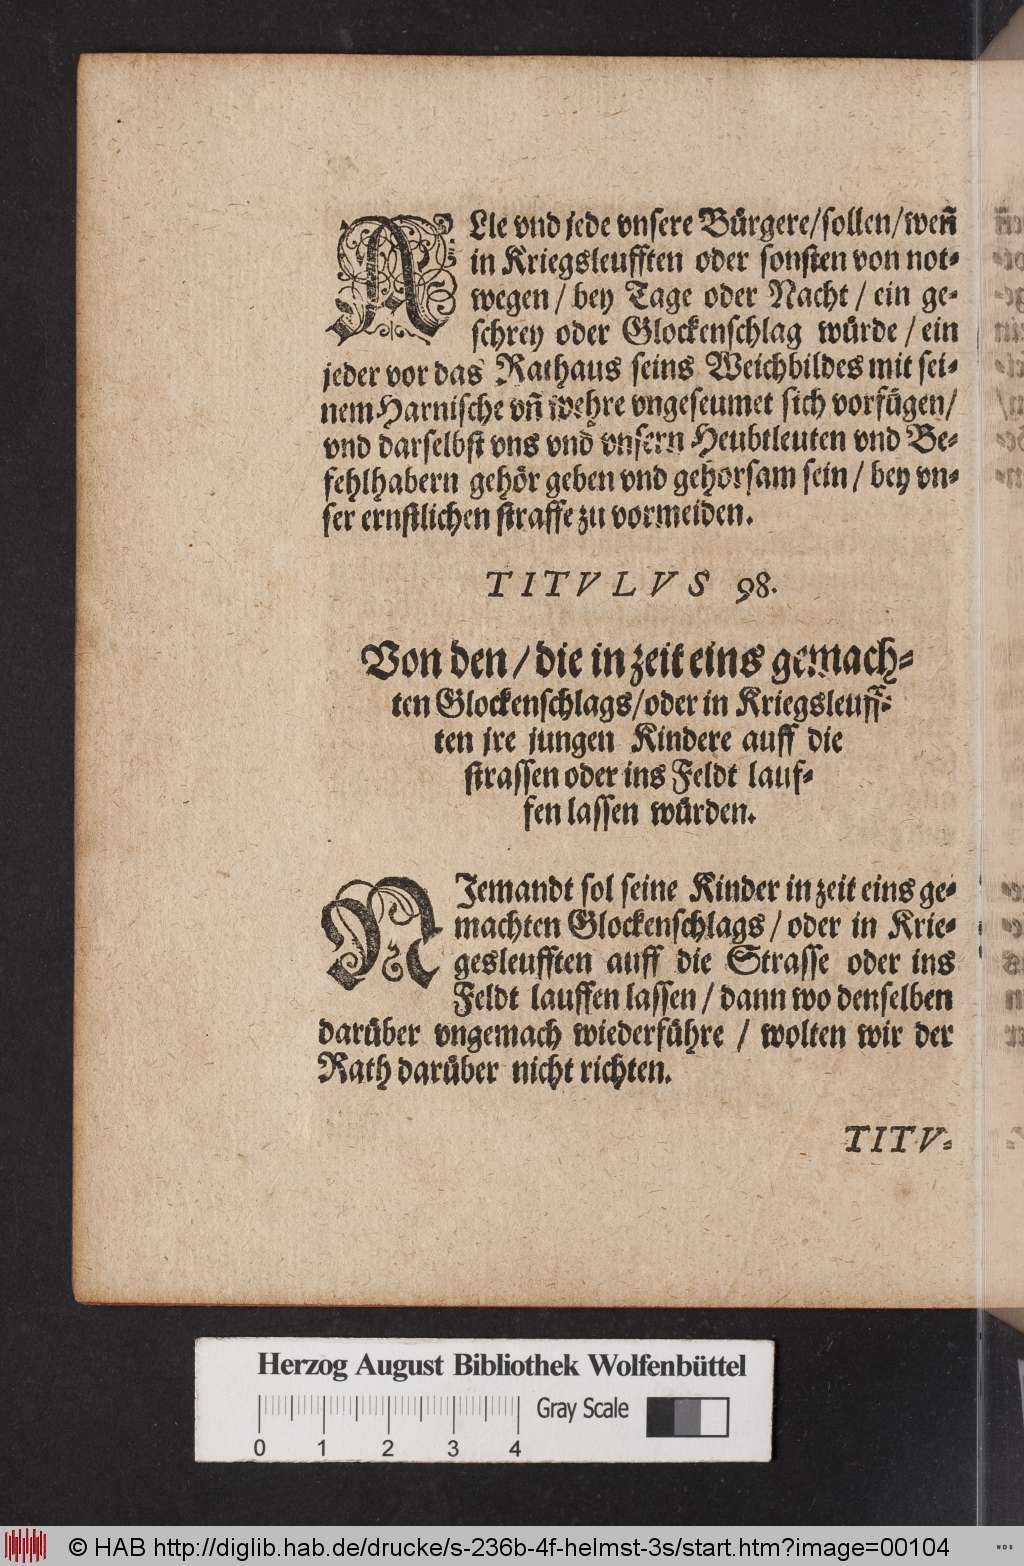 ALle vnd jede vnsere Bürgere/sollen/weñ
in Kriegsleufften oder sonsten von not-
wegen / bey Tage oder Nacht / ein ge-
schrey oder Glockenschlag würde / ein
jeder vor das Rathaus seins Weichbildes mit sei-
nem Harnische vñ wehre vngeseumet sich vorfügen/
vnd darselbst vns vnd vnsern Heubtleuten vnd Be-
fehlhabern gehör geben vnd gehorsam sein / bey vn-
ser ernstlichen straffe zu vormeiden.
TITVLVS 98.
Von den / die in zeit eins gemach-
ten Glockenschlags/oder in Kriegsleuff-
ten jre jungen Kindere auff die
strassen oder ins Feldt lauf-
fen lassen würden.
NJemandt sol seine Kinder in zeit eins ge-
machten Glockenschlags / oder in Krie-
gesleufften auff die Strasse oder ins
Feldt lauffen lassen / dann wo denselben
darüber vngemach wiederführe / wolten wir der
Rath darüber nicht richten.
TITV-
Herzog August Bibliothek Wolfenbüttel
Gray Scale
0 1 2 3 4
© HAB http://diglib.hab.de/drucke/s-236b-4f-helmst-3s/start.htm?image=00104